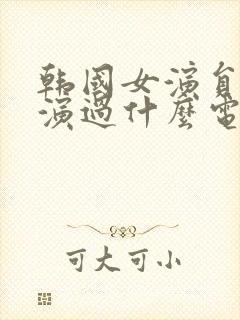 韩國女演員
演過什麼電
可大可小